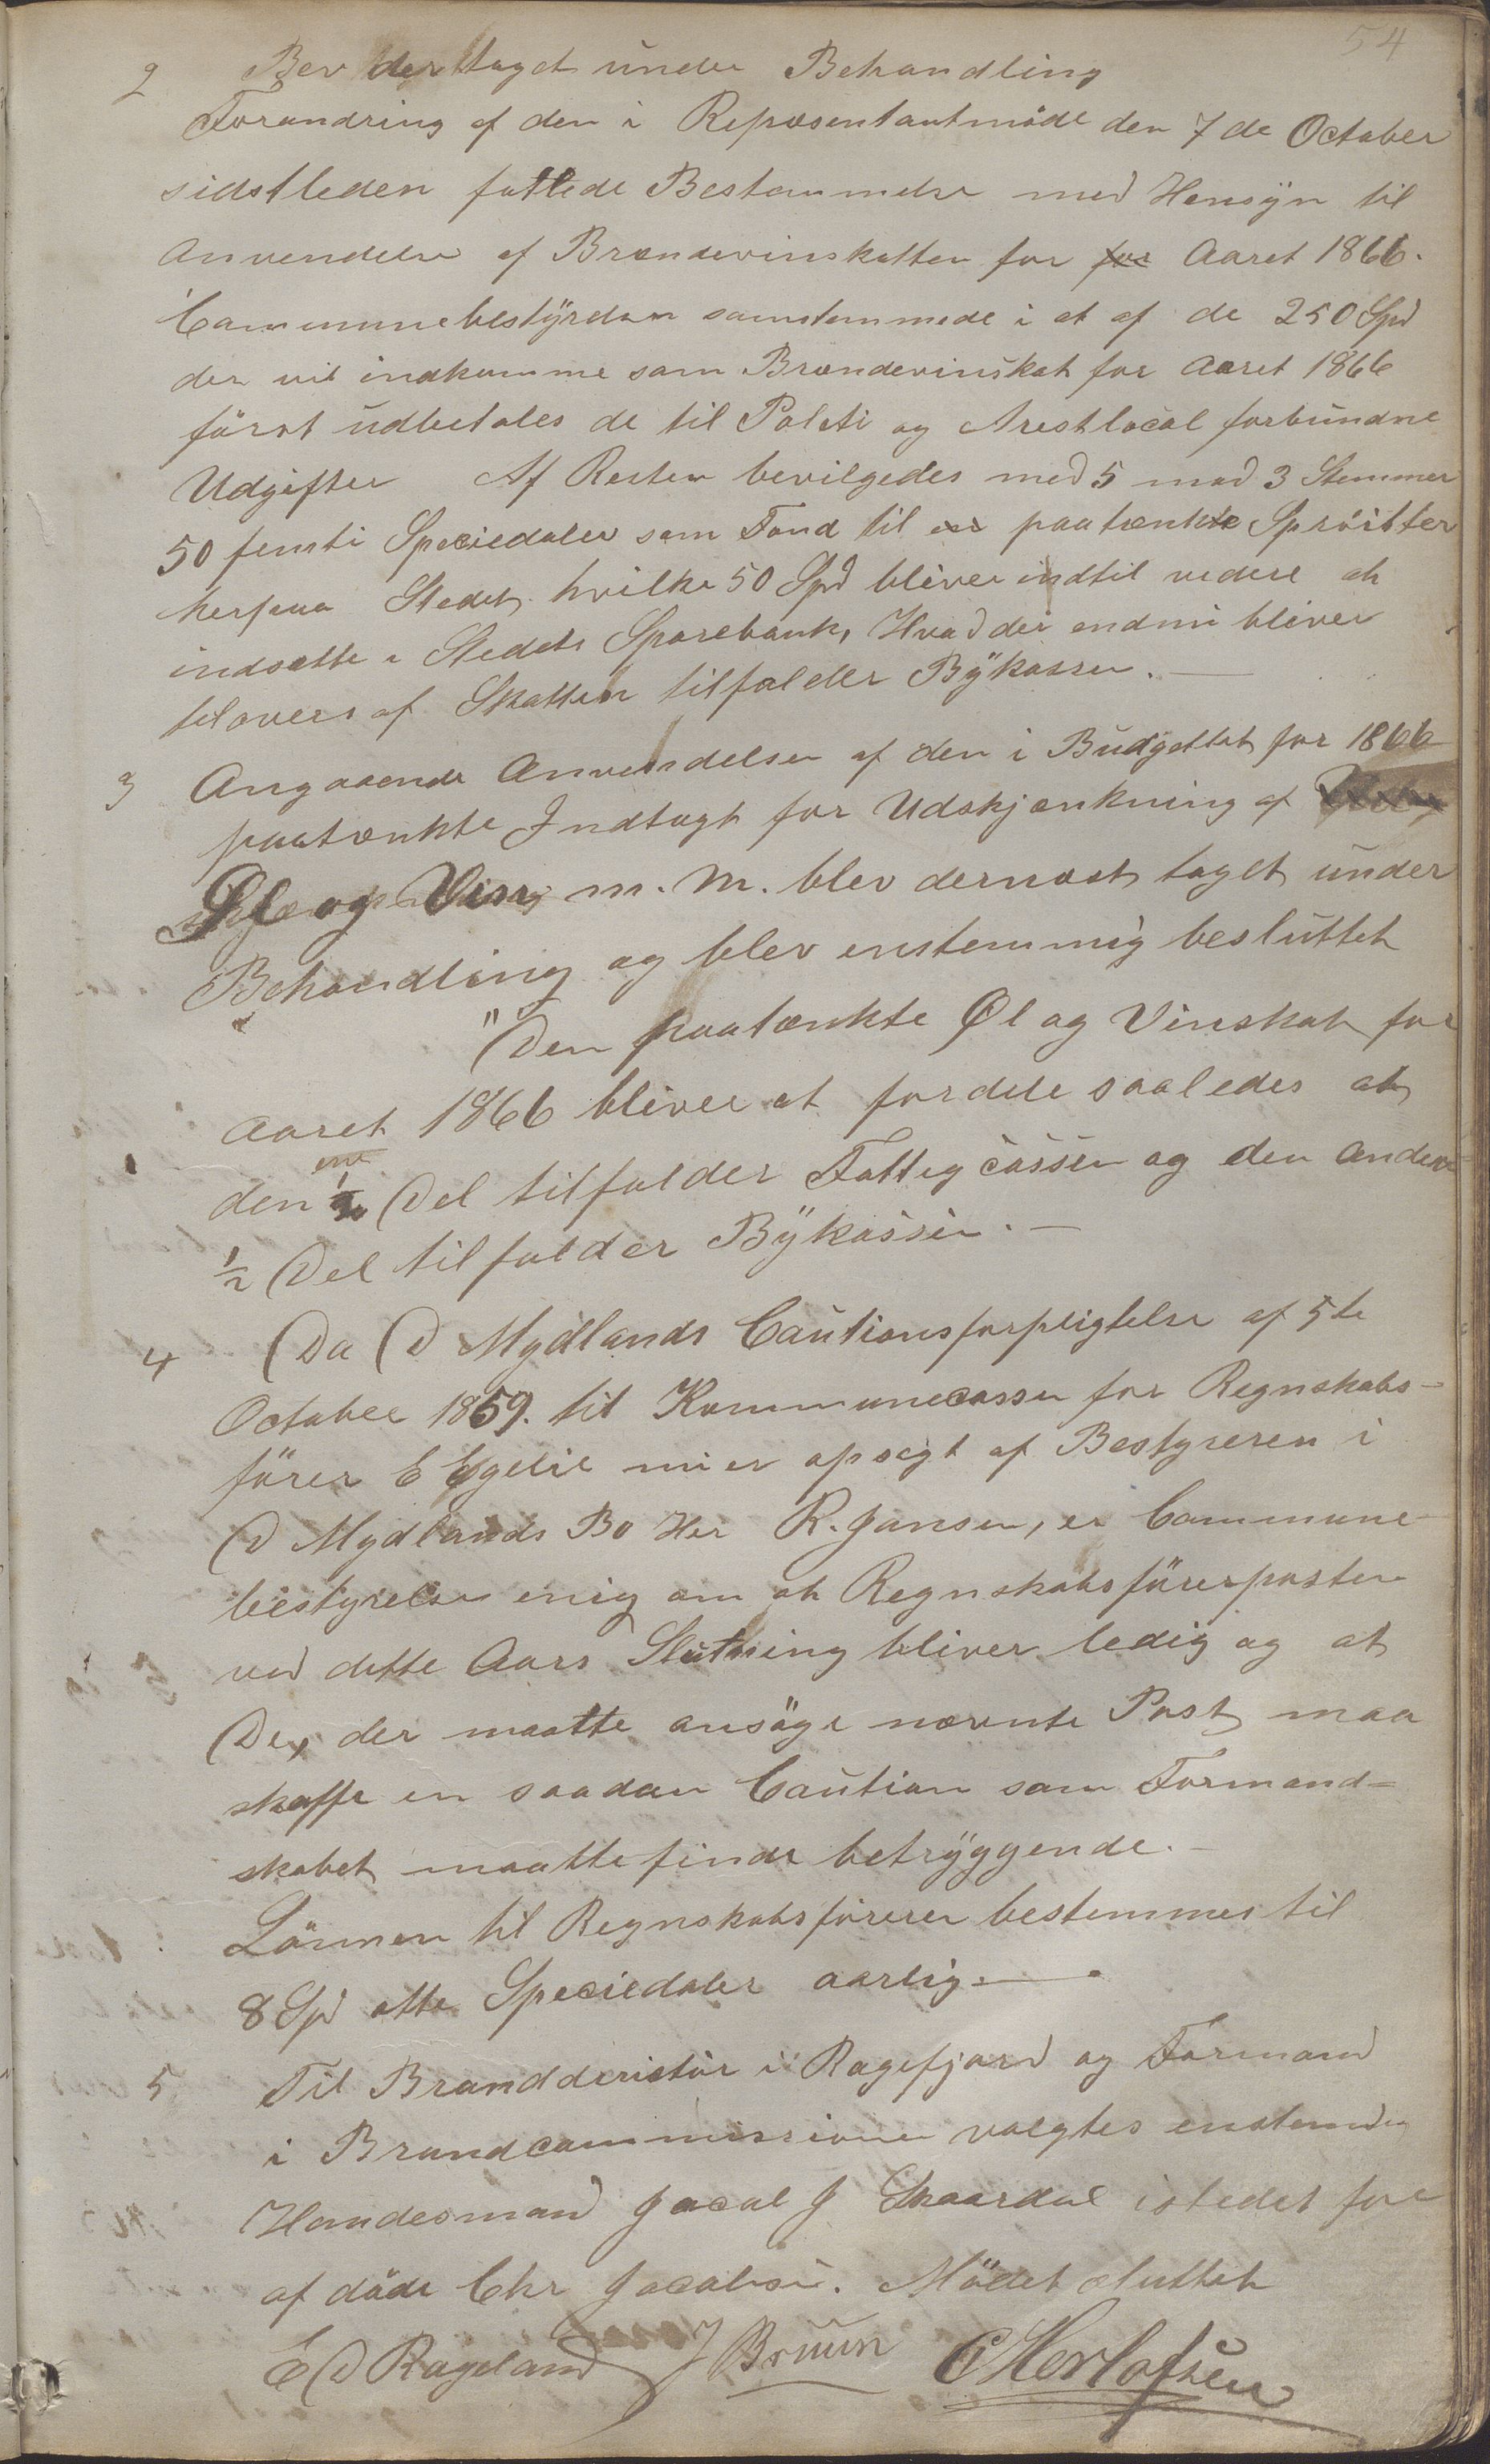 54
2 Blev der taget under Behandling
Forandring af den i Repræsentantmöde den 7de October
sidstleden fattede Bestemmelse med Hensyn til
Anvendelse af Brændevinskatten for for Aaret 1866.
Communebestyrelsen samstemmede i at af de 250 Spd
der vil indkomme som Brændevinskat for Aaret 1866
först udbetales de til Politi og Arestlocal forbundne
Udgifter Af Resten bevilgedes med 5 mod 3 Stemmer
50 femti Speciedaler som Fond til paatænkte Spröiter
herpaa Stedet hvilke 50 Spd bliver indtil videre at
indsætte i Stedets Sparebank, Hvad der endnu bliver
tilovers af Skatten tilfalder Bykassen.
3 Angaaende Anvendelsen af den i Budgettet for 1866
paatænkte Indtægt for Udskjænkning af
Øl og Vin m. m. blev dernæst taget under
Behandling og blev enstemmig besluttet
"Den paatænkte Øl og Vinskat for
Aaret 1866 bliver at fordele saaledes at
den ene 1/2 Del tilfalder Fattigcassen og den anden
1/2 Del tilfalder Bykassen.
4 Da D Mydlands Cautionsforpligtelse af 5te
October 1859. til Kommunecassen for Regnskabs-
förer E nu er opsagt af Bestyreren i
D Mydlands Bo Her R. Jansen, er Commune-
bestyrelsen enig om at Regnskabsförerposten
ved dette Aars Slutning bliver ledig og at
De, der maatte ansöge nævnte Post maa
skaffe en saadan Caution som Formand=
skabet maatte finde betryggende.
Lönnen til Regnskabsföreren bestemmes til
8 Spd otte Speciedaler aarlig
5 Til Branddirictör i Ragefjord og Formand
i Brandcommissionen valgtes enstemmig
Handesmand Jacob J Skaardal istedet for
afdöde Chr Jacobsen. Mödet sluttet
E D Rageland J Bruun C Herlofsen